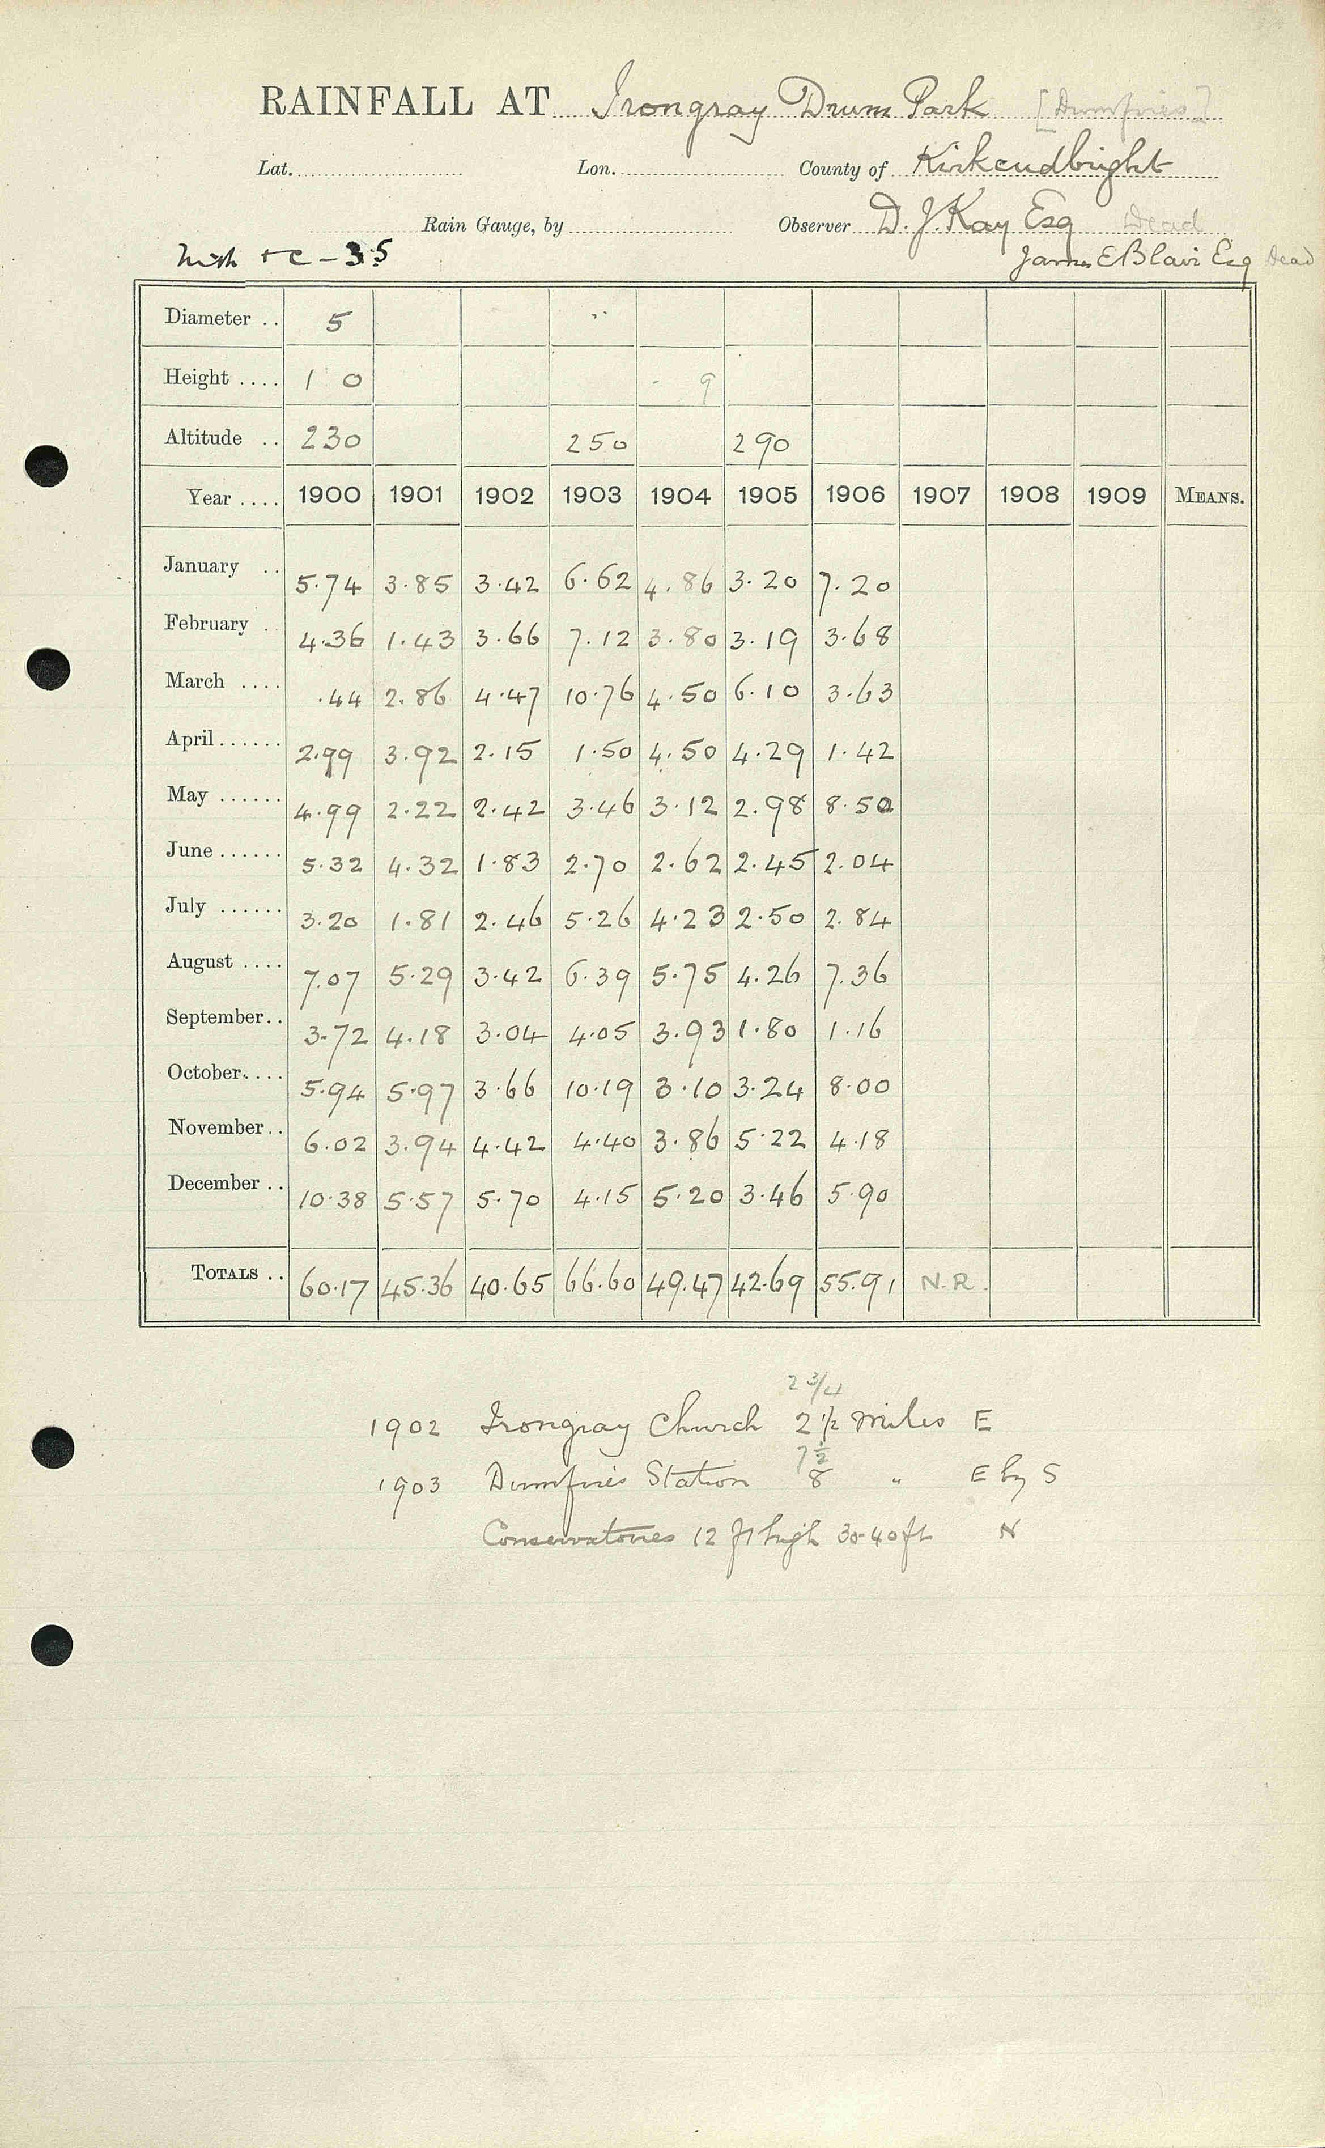 RAINFALL AT Irongray Drum Park [Dumfries]
Lat. Lon. County of Kirkcudbright
Rain Gauge, by Observer D. J. Kay Esq Dead
+ C - 35 James E Blair Esq Dead
Diameter .. 5 "
Height .... 1 0 9
Altitude .. 230 250 290
Year .... 1900 1901 1902 1903 1904 1905 1906 1907 1908 1909 MEANS.
January .. 5.74 3.85 3.42 6.62 4.86 3.20 7.20
February .. 4.36 1.43 3.66 7.12 3.80 3.19 3.68
March .... .44 2.86 4.47 10.76 4.50 6.10 3.63
April ...... 2.99 3.92 2.15 1.50 4.50 4.29 1.42
May ...... 4.99 2.22 2.42 3.46 3.12 2.98 8.50
June ...... 5.32 4.32 1.83 2.70 2.62 2.45 2.04
July ...... 3.20 1.81 2.46 5.26 4.23 2.50 2.84
August .... 7.07 5.29 3.42 6.39 5.75 4.26 7.36
September.. 3.72 4.18 3.04 4.05 3.93 1.80 1.16
October.... 5.94 5.97 3.66 10.19 3.10 3.24 8.00
November.. 6.02 3.94 4.42 4.40 3.86 5.22 4.18
December .. 10.38 5.57 5.70 4.15 5.20 3.46 5.90
TOTALS .. 60.17 45.36 40.65 66.60 49.47 42.69 55.91 N.R.
2 3/4
1902 Irongray Church 2 1/2 miles E
7 1/2
1903 Dumfries Station 8 " E by S
Conservatories 12 ft high 30-40 ft N